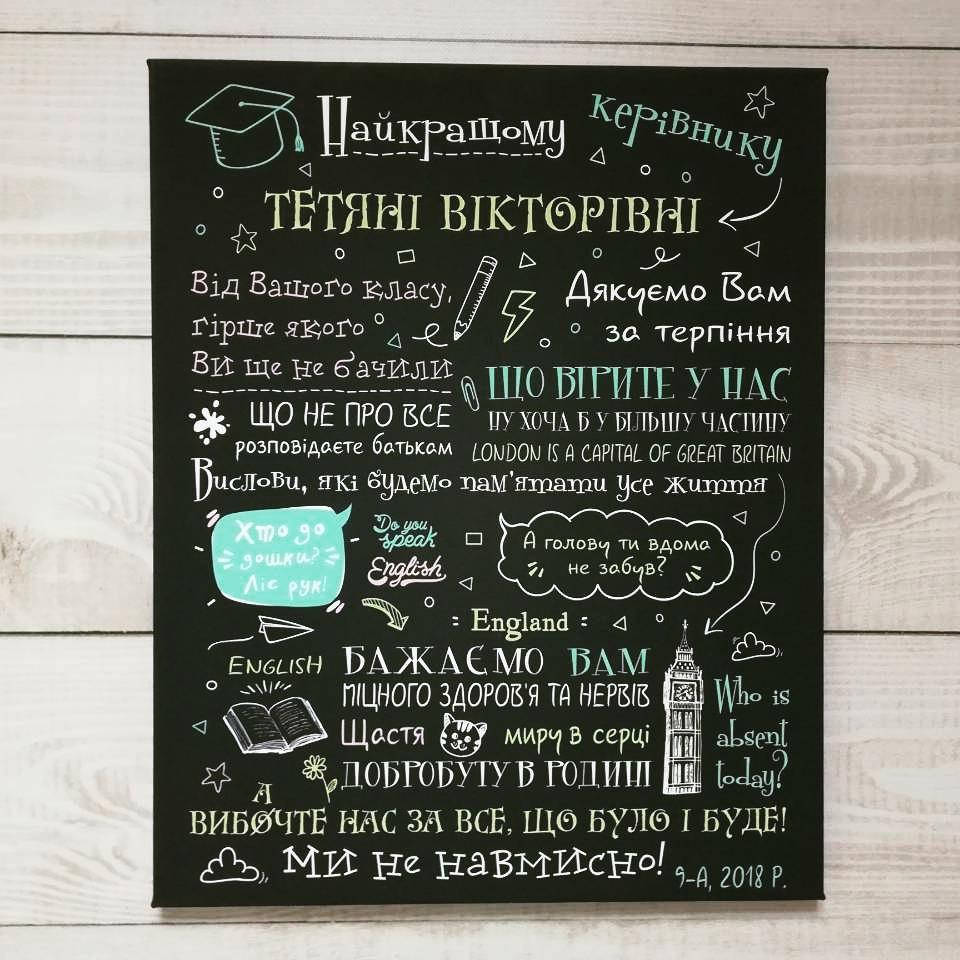 Найкращому керівнику
ТЕТЯНІ ВІКТОРІВНІ
Від Вашого класу,
гірше якого
Ви ще не бачили
Дякуємо Вам
за терпіння
ЩО НЕ ПРО ВСЕ
розповідаєте батькам
ЩО ВІРИТЕ У НАС
НУ ХОЧА Б У БІЛЬШУ ЧАСТИНУ
LONDON IS A CAPITAL OF GREAT BRITAIN
Вислови, які будемо пам'ятати усе життя
Хто до
дошки?
Ліс рук!
Do you
speak
English
А голову ти вдома
не забув?
England
ENGLISH
БАЖАЄМО ВАМ
МІЦНОГО ЗДОРОВ'Я ТА НЕРВІВ
Щастя миру в серці
ДОБРОБУТУ В РОДИНІ
Who is
absent
today?
А
ВИБОЧТЕ НАС ЗА ВСЕ, ЩО БУЛО І БУДЕ!
МИ не навмисно!
9-А, 2018 Р.